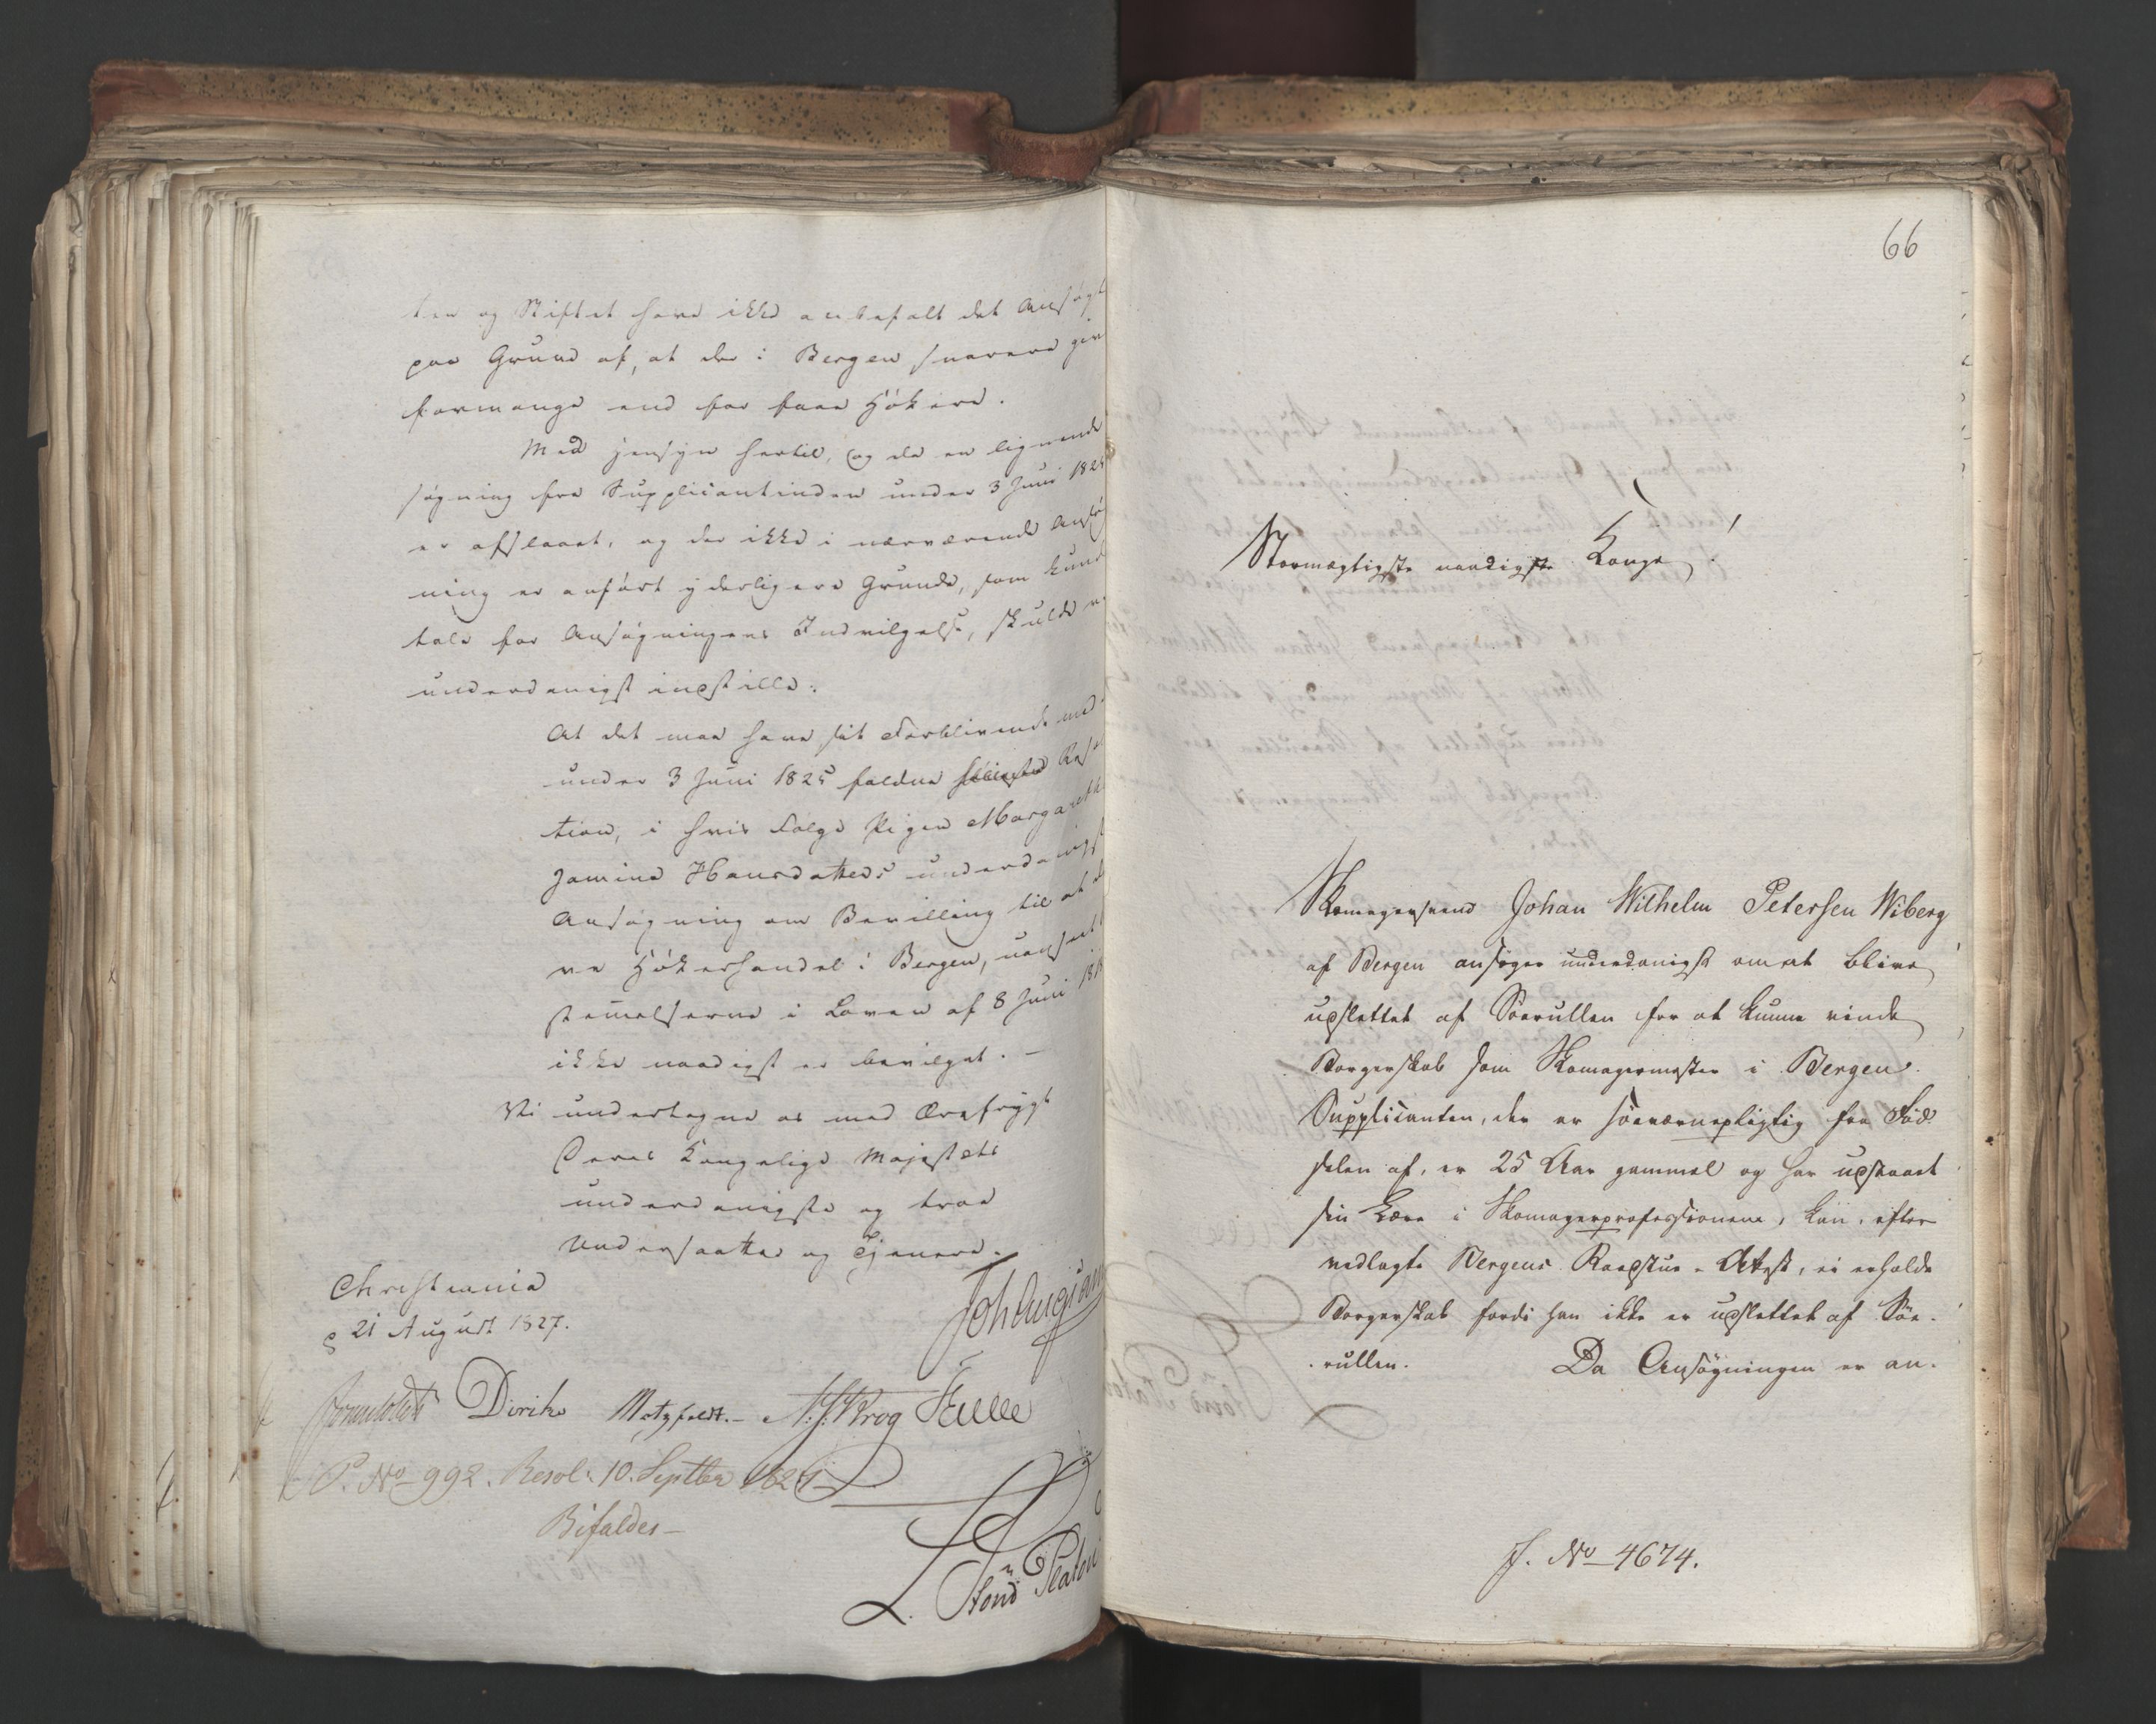 ten og Stiftet have ikke anbefalt det Ansøgt
paa Grund af, at der i Bergen snarere giv
formange end for faae Hökere.
Med Hensyn hertil, og da en lignende
søgning fra Supplicantinden under 3 Juni 182
er afslaaet, og der ikke i nærværende Ansø
ning er anført yderligere Grunde, som kund
tale for Ansøgningens Indvilgelse, skulde v
underdanigst indstille:
At det maa have sit Forblivende med
under 3 Juni 1825 faldne Reso
tion, i hvis Følge Pigen Margareth
Jamina Hansdatters underdanigst
Ansøgning om Bevilling til at d
ve Hökerhandel i Bergen, uanseet
stemmelserne i Loven af 8 Juni 181
ikke naadigst er bevilget. –
Vi undertegne os med Ærefrygt
Deres Kongelige Majestæts
underdanigste og troe
Undersaatter og Tjenere.
Christiania
d 21 August 1827.
Joh Aug Sand
Sommhielm Diriks Motzfeldt.– N. J. Krog Fasting
P. No 992. Resol: 10. Septbr 1827
Bifaldes –
L. v Platou
66
Stormægtigste naadigste Konge!
Skomagersvend Johan Wilhelm Petersen Wiberg
af Bergen ansøger underdanigst om at blive
udslettet af Søerullen for at kunne vinde
Borgerskab som Skomagermester i Bergen.
Supplicanten, der er søeværnepligtig fra Fød-
selen af, er 25 Aar gammel og har udstaaet
sin Lære i Skomagerprofessionene, kan, efter
vedlagte Bergens Raadstue-Attest, ei erholde
Borgerskab fordi han ikke er udslettet af Søe-
rullen. Da Ansøgningen er an-
J. No 4674.